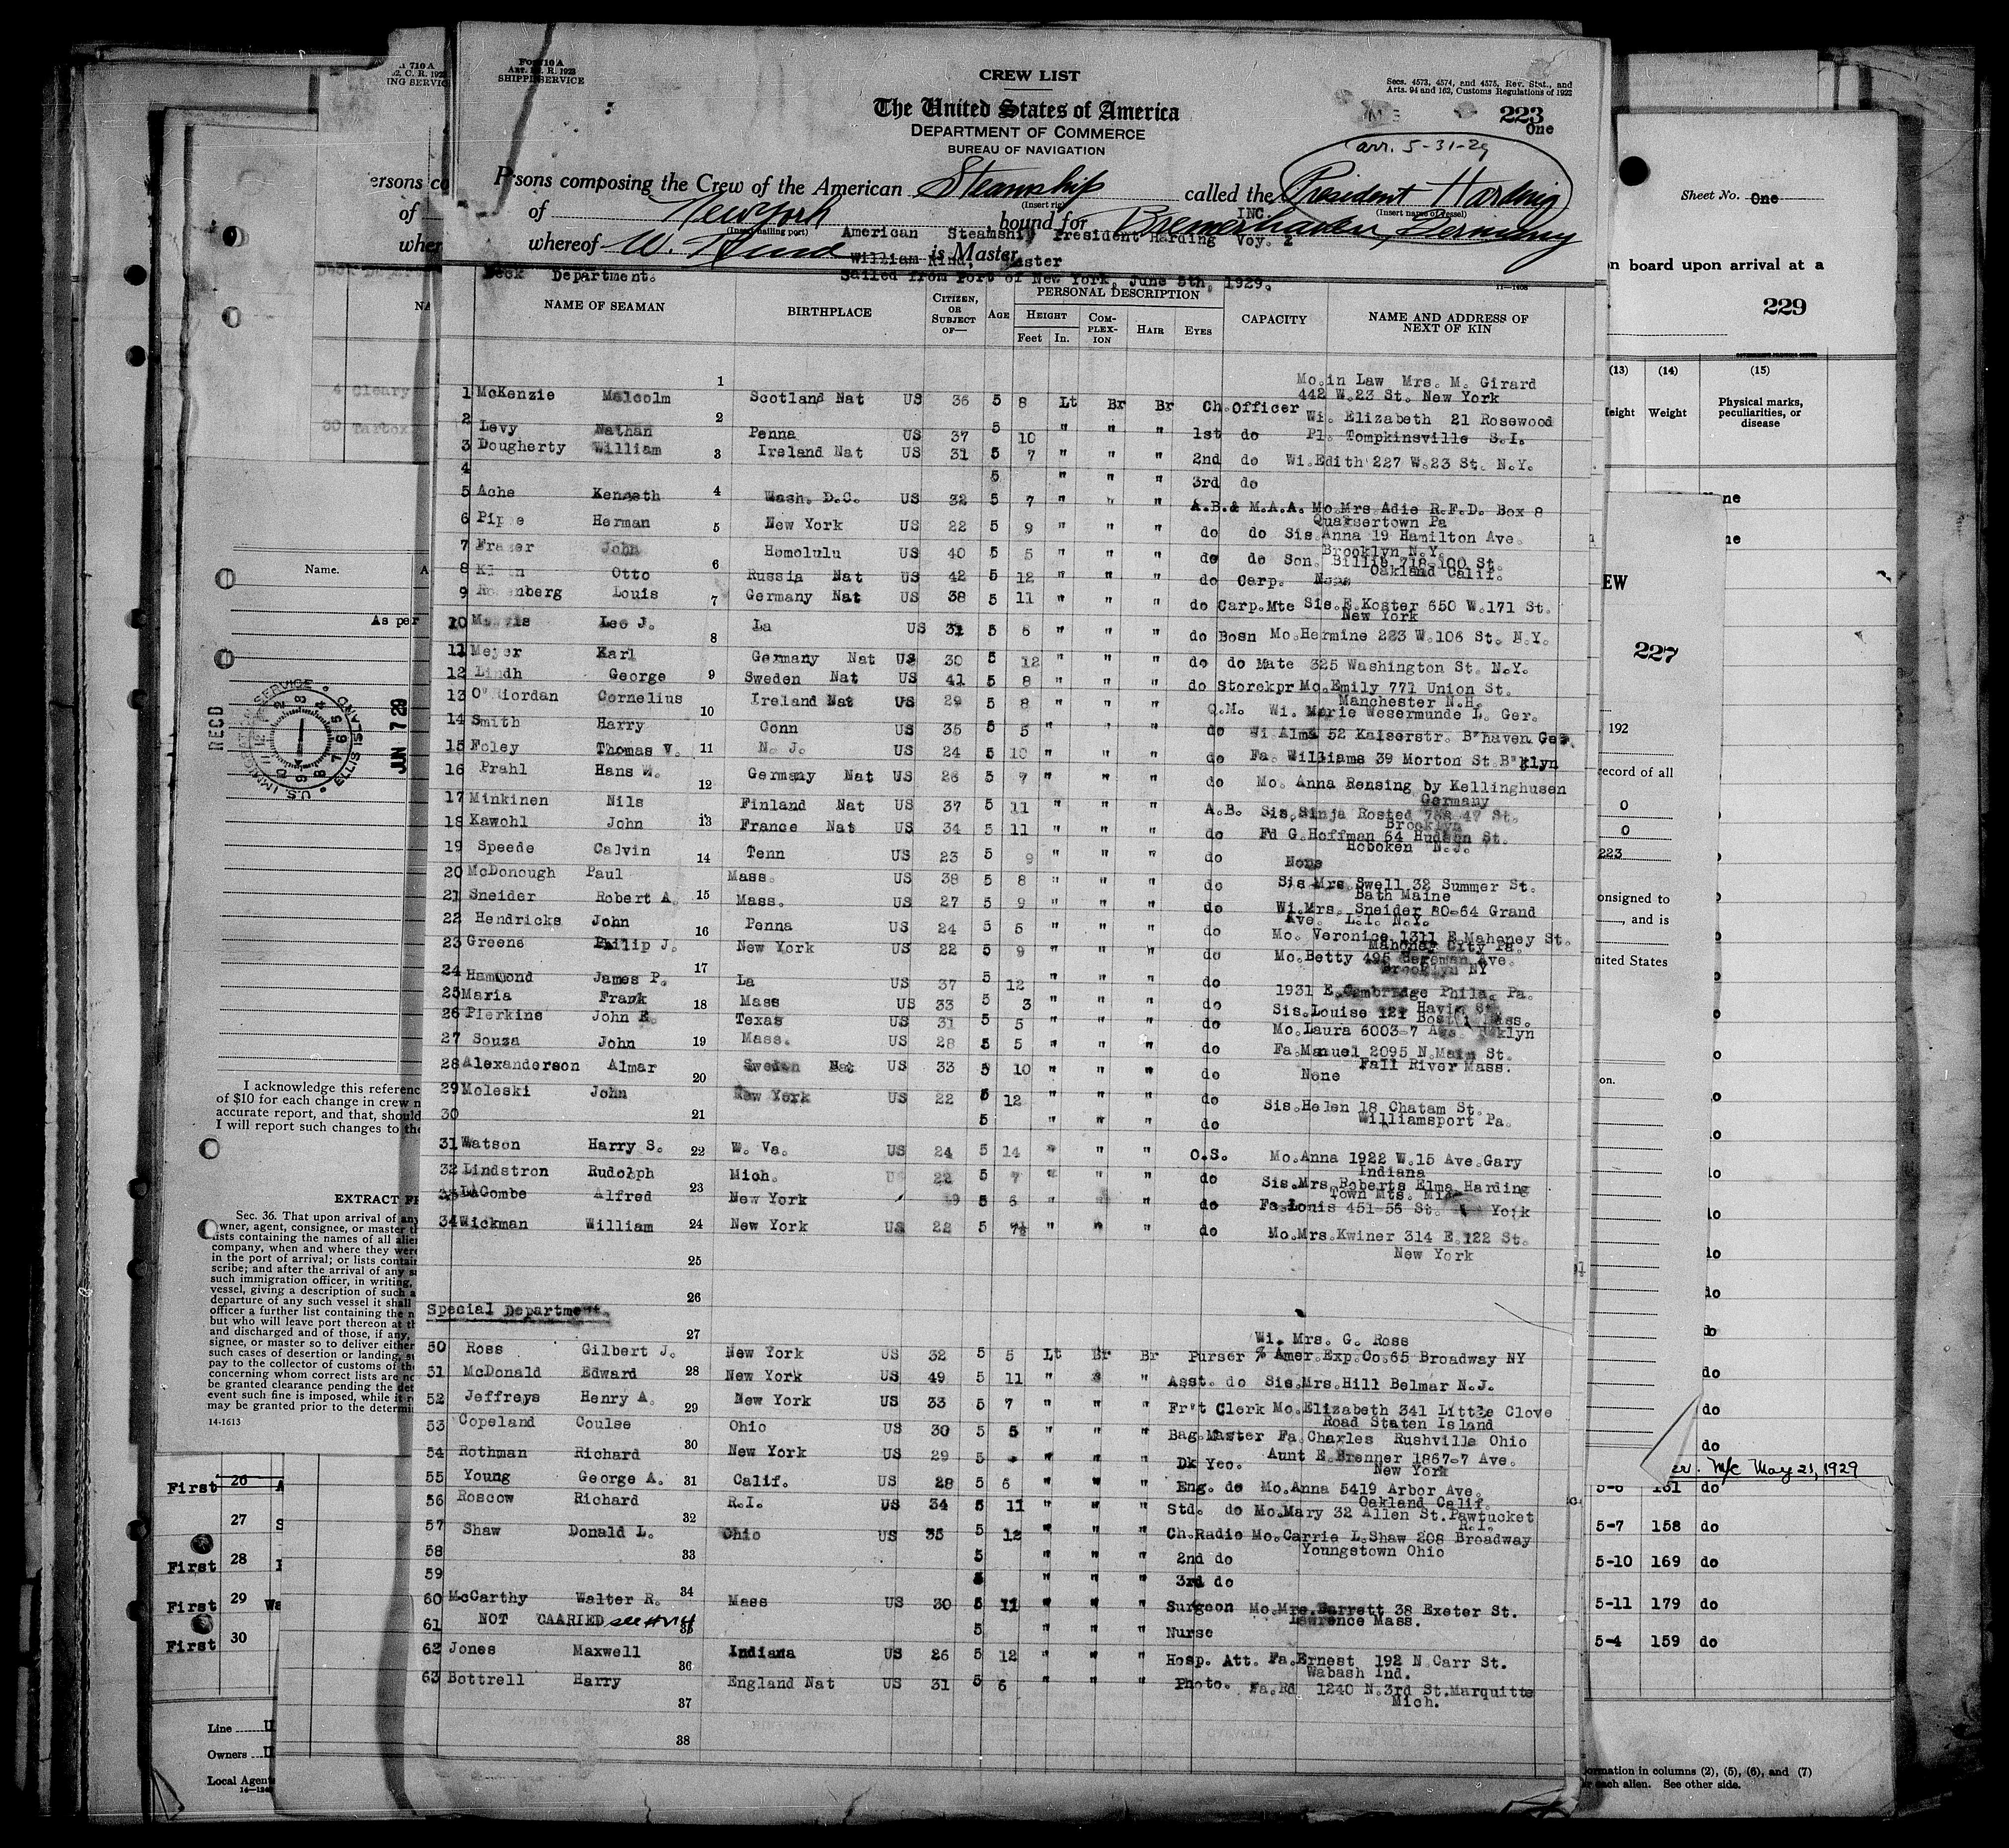 FORM 710 A
ART. R. 1923
SHIPPING SERVICE
CREW LIST
Secs. 4573, 4574, and 4575, Rev. Stat., and
Arts. 94 and 162, Customs Regulations of 1923
The United States of America
223
One
DEPARTMENT OF COMMERCE
BUREAU OF NAVIGATION
arr. 5-31-29
Persons composing the Crew of the American Steamship called the President Harding
(Insert rig) (Insert name of vessel)
of New York, bound for Bremerhaven, Germany
(Insert hailing port) INC.
American Steamship President Harding Voy. 2
whereof W. Rind is Master
William Rind, Master
Deck Department. Sailed from Port of New York, June 5th, 1929.
11-1408
NAME OF SEAMAN BIRTHPLACE CITIZEN, OR SUBJECT OF— AGE PERSONAL DESCRIPTION HEIGHT Feet In. COMPLEXION HAIR EYES CAPACITY NAME AND ADDRESS OF NEXT OF KIN
Mo.in Law Mrs. M. Girard
1 McKenzie Malcolm Scotland Nat US 36 5 8 Lt Br Br Ch.Officer 442 W.23 St. New York
2 Levy Nathan Penna US 37 5 10 " " " 1st do Wi. Elizabeth 21 Rosewood
Pl. Tompkinsville S.I.
3 Dougherty William Ireland Nat US 31 5 7 " " " 2nd do Wi.Edith 227 W.23 St. N.Y.
4 5 " " " 3rd do
5 Ache Kenneth Wash. D.C. US 32 5 7 " " " A.B.& M.A.A. Mo.Mrs Adie R.F.D. Box 8
Quakertown Pa
6 Pippe Herman New York US 22 5 9 " " " do do Sis.Anna 19 Hamilton Ave.
Brooklyn N.Y.
7 Fraser John Homolulu US 40 5 5 " " " do do Son. Billie 718-100 St.
Oakland Calif.
8 Otto Russia Nat US 42 5 12 " " " do Carp. None
9 Louis Germany Nat US 38 5 11 " " " do Carp.Mte Sis.E.Koster 650 W.171 St.
New York
10 Leo J. La US 31 5 8 " " " do Bosn Mo.Hermine 223 W.106 St. N.Y.
11 Meyer Karl Germany Nat US 30 5 12 " " " do do Mate 325 Washington St. N.Y.
12 Lindh George Sweden Nat US 41 5 8 " " " do Storekpr Mo.Emily 771 Union St.
Manchester N.H.
13 O'Riordan Cornelius Ireland Nat US 29 5 8 " " " Q.M. Wi. Marie Wesermunde L. Ger.
14 Smith Harry Conn US 35 5 5 " " " do Wi Alma 52 Kaiserstr. B'haven Ger.
15 Foley Thomas V. N. J. US 24 5 10 " " " do Fa. Williams 39 Morton St B'klyn
16 Prahl Hans W. Germany Nat US 26 5 7 " " " do Mo. Anna Rensing by Kellinghusen
Germany
17 Minkinen Nils Finland Nat US 37 5 11 " " " A.B. Sis.Sinja Rosted 47 St.
Brooklyn
18 Kawohl John France Nat US 34 5 11 " " " do Fd G.Hoffman 64 Hudson St.
Hoboken N.J.
19 Speede Calvin Tenn US 23 5 9 " " " do None
20 McDonough Paul Mass. US 38 5 8 " " " do Sis Mrs.Swell 32 Summer St.
Bath Maine
21 Sneider Robert A. Mass. US 27 5 9 " " " do Wi.Mrs. Sneider 80-64 Grand
Ave. L.I. N.Y.
22 Hendricks John Penna US 24 5 6 " " " do Mo. Veronica 1311 E.Mahoney St.
Mahoney City Pa.
23 Greene Philip J. New York US 22 5 9 " " " do Mo.Betty 495 Hegeman Ave.
Brooklyn NY
24 Hammond James P. La US 37 5 12 " " " do 1931 E.Cambridge Phila. Pa.
25 Maria Frank Mass US 33 5 3 " " " do Sis.Louise 121 St.
Mass.
26 Pierkins John E. Texas US 31 5 5 " " " do Mo.Laura 6003-7 Ave.
27 Souza John Mass. US 28 5 5 " " " do Fa.Manuel 2095 N.Main St.
Fall River Mass.
28 Alexanderson Almar Sweden Nat US 33 5 10 " " " do None
29 Moleski John New York US 22 5 12 " " " do Sis.Helen 18 Chatam St.
Williamsport Pa.
30 5 " " " do
31 Watson Harry S. W. Va. US 24 5 14 " " " O.S. Mo.Anna 1922 W.15 Ave.Gary
Indiana
32 Lindstron Rudolph Mich. US 22 5 7 " " " do Sis.Mrs.Roberts Elma Harding
Town Mts.
33 LaCombe Alfred New York 5 6 " " do Fa.Louis 451-56 St. York
34 Wickman William New York US 22 5 7½ " " " do Mo.Mrs.Kwiner 314 E.122 St.
New York
Special Department.
Wi. Mrs. G. Ross
50 Ross Gilbert J. New York US 32 5 5 Lt Br Br Purser % Amer.Exp.Co.65 Broadway NY
51 McDonald Edward New York US 49 5 11 " " " Asst. do Sis.Mrs.Hill Belmar N.J.
52 Jeffreys Henry A. New York US 33 5 7 " " " Fr't Clerk Mo.Elizabeth 341 Little Clove
Road Staten Island
53 Copeland Coulse Ohio US 30 5 5 " " " Bag.Master Fa.Charles Rushville Ohio
54 Rothman Richard New York US 29 5 " " " Dk Yeo. Aunt E.Brenner 1867-7 Ave.
New York
55 Young George A. Calif. US 28 5 6 " " " Eng. do Mo.Anna 5419 Arbor Ave.
Oakland Calif.
56 Roscow Richard R.I. US 34 5 11 " " " Std. do Mo.Mary 32 Allen St.Pawtucket
R.I.
57 Shaw Donald L. Ohio US 35 5 12 " " " Ch.Radio Mo.Carrie L.Shaw 208 Broadway
Youngstown Ohio
58 5 " " " 2nd do
59 5 " " " 3rd do
60 McCarthy Walter R. Mass US 30 5 11 " " " Surgeon Mo.Mrs.Barrett 38 Exeter St.
Lawrence Mass.
61 NOT CAARIED see 5 " " " Nurse
62 Jones Maxwell Indiana US 26 5 12 " " " Hosp. Att. Fa.Ernest 192 N.Carr St.
Wabash Ind.
63 Bottrell Harry England Nat US 31 5 6 " " " Photo. Fa.Rd 1240 N.3rd St.Marquitte
Mich.
1
2
3
4
5
6
7
8
9
10
11
12
13
14
15
16
17
18
19
20
21
22
23
24
25
26
27
28
29
30
31
32
33
34
35
36
37
38
4 Cleary
30
Name.
As per
RECD
U.S. IMMIG SERVICE ELLIS ISLAND
JUN 7 29
I acknowledge this
of $10 for each change in crew
accurate report, and that, should
I will report such changes to the
EXTRACT
Sec. 36. That upon arrival of any
owner, agent, consignee, or master
lists containing the names of all
company, when and where they were
in the port of arrival; or lists
scribe; and after the arrival of any
such immigration officer, in writing,
vessel, giving a description of such
departure of any such vessel it shall
officer a further list containing the
but who will leave port thereon at
and discharged and of those, if any,
signee, or master so to deliver either
such cases of desertion or landing,
pay to the collector of customs of the
concerning whom correct lists are
be granted clearance pending the
event such fine is imposed, while it
may be granted prior to the
14-1613
First 26
27
First 28
First 29
First 30
Line
Owners
Local Agent
Sheet No. One
on board upon arrival at a
229
(13) (14) (15)
Height Weight Physical marks, peculiarities, or disease
227
192
record of all
0
0
223
consigned to
, and is
United States
do
do
do
May 21, 1929
161 do
5-7 158 do
5-10 169 do
5-11 179 do
5-4 159 do
information in columns (2), (5), (6), and (7)
or each alien. See other side.